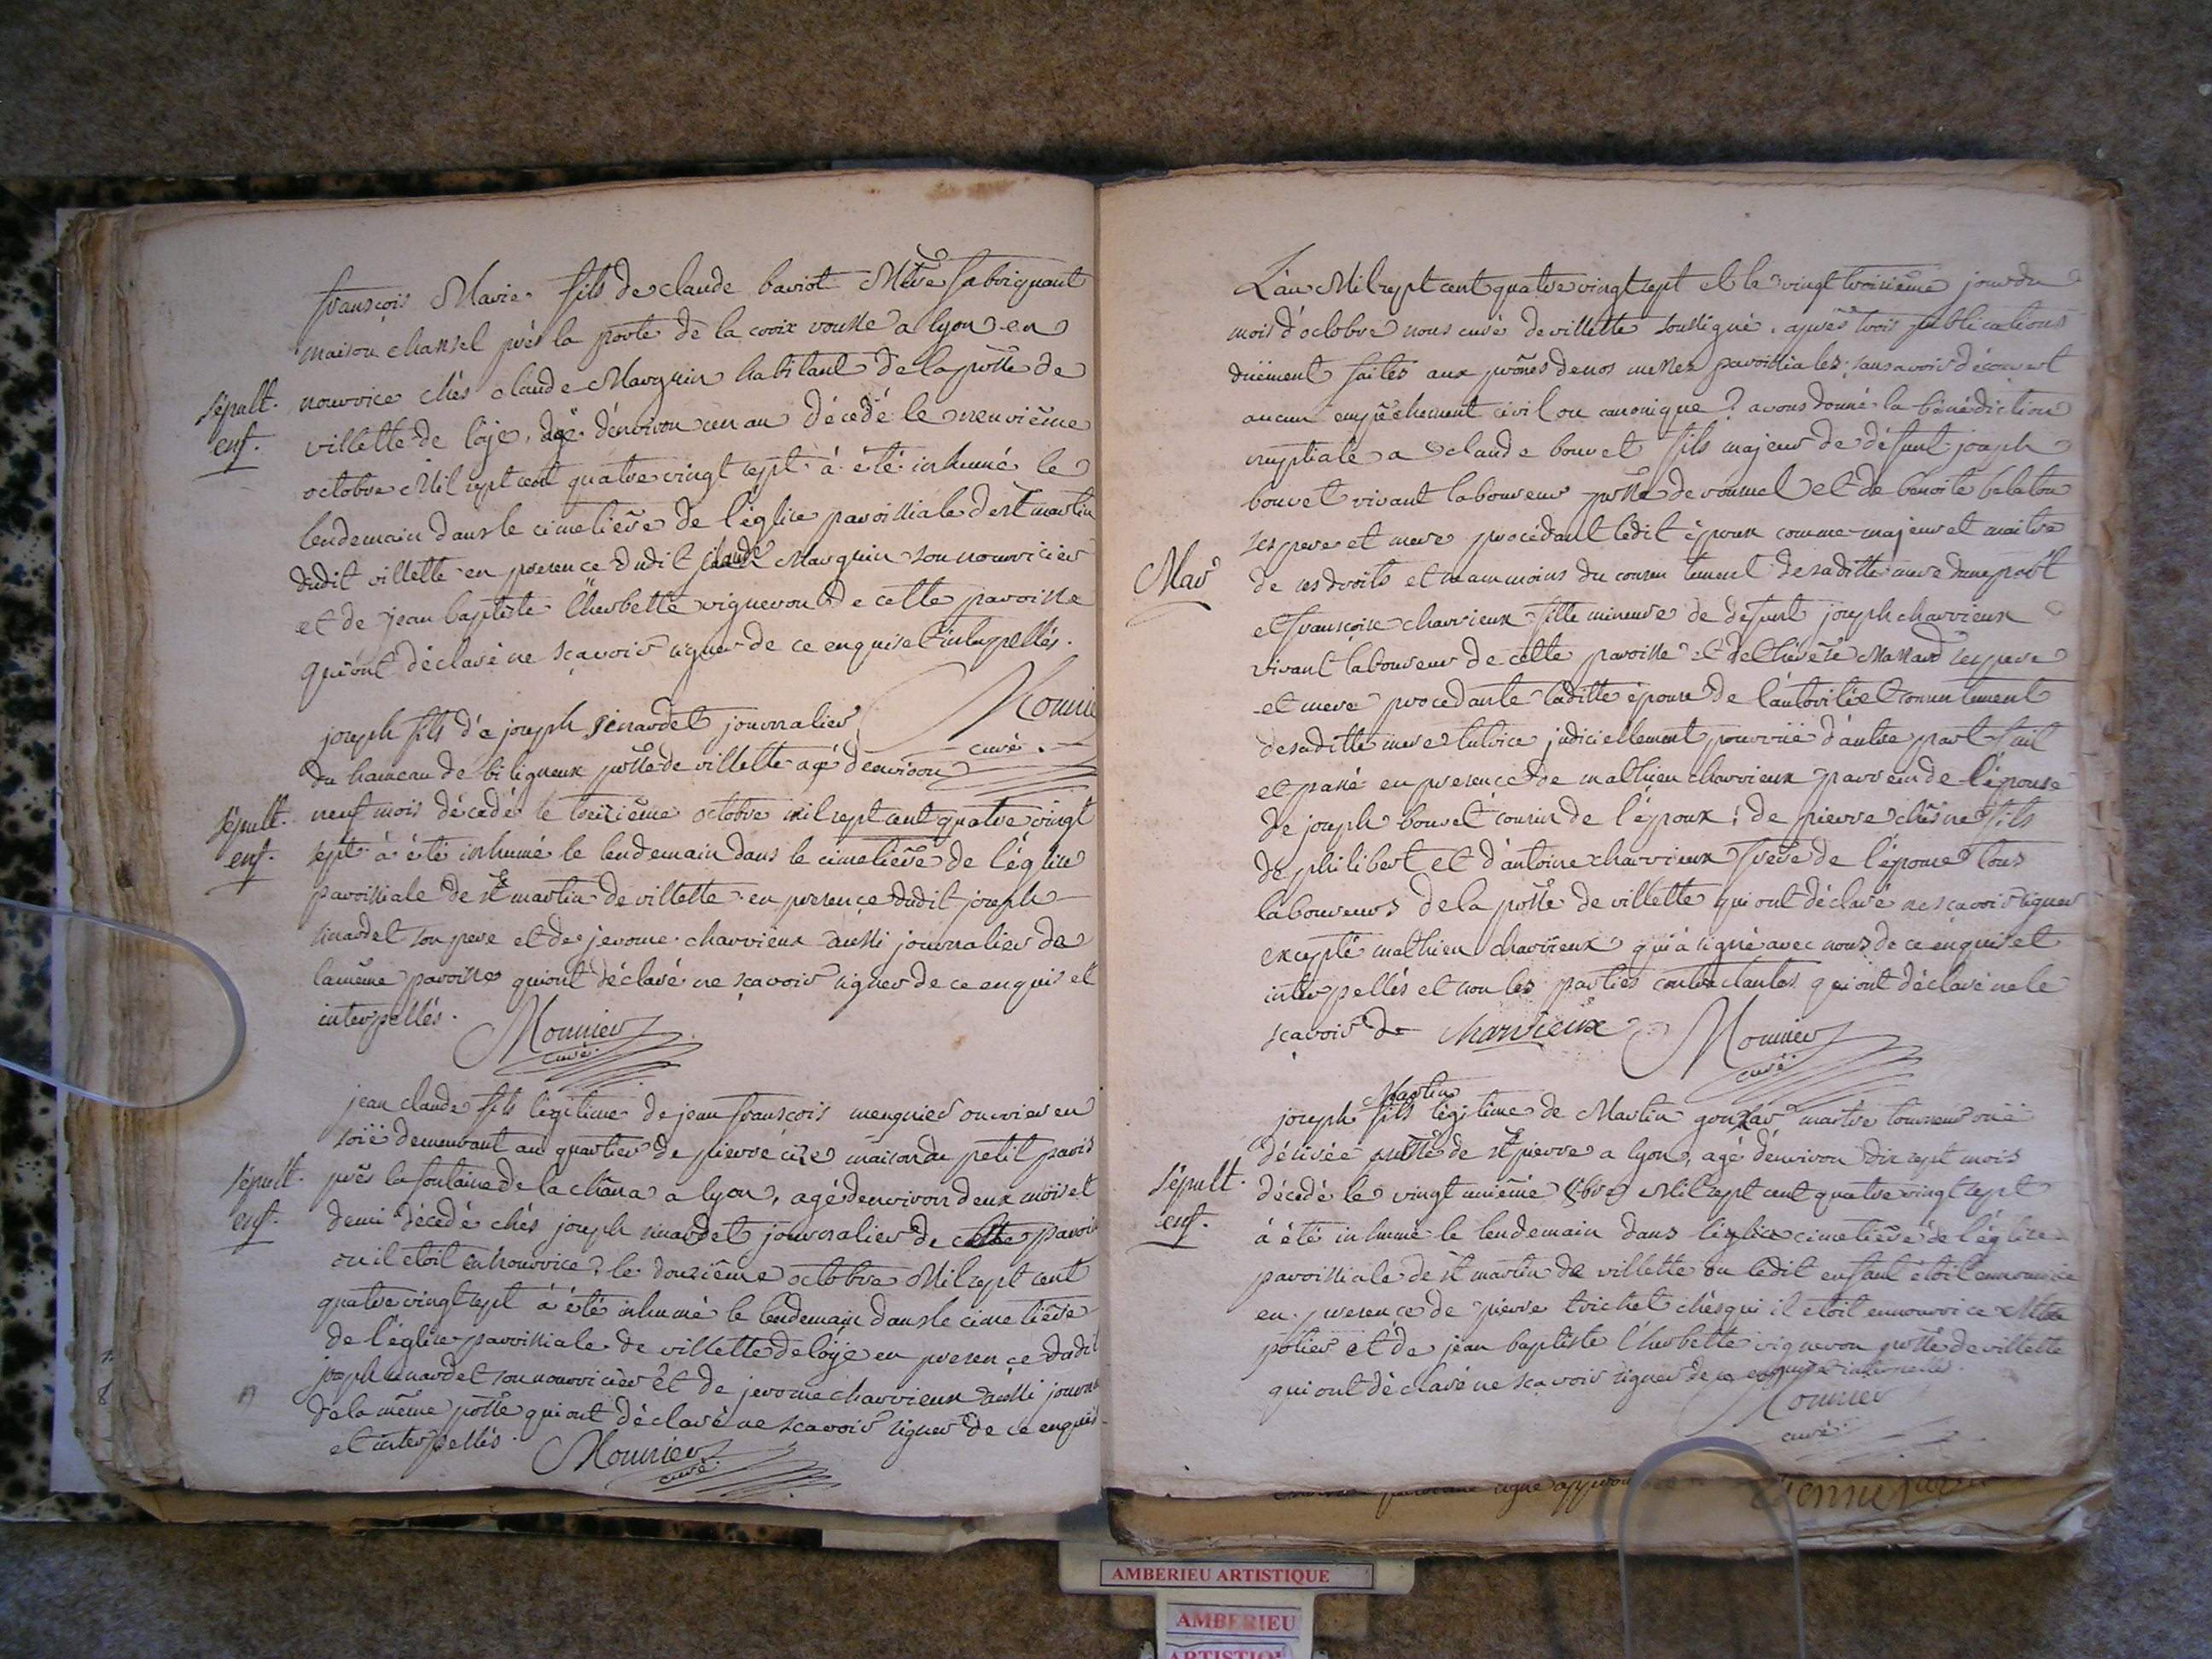 françois Marie fils de claude baviot Mtre fabriquant
maison chansel près la porte de la croix rousse a lyon en
sépult. nourrice chés claude Marguin habitant de la psse de
enf. villette de loije, agé d'environ un an décedé le neuvième
octobre Mil sept cent quatre vingt sept à été inhumé le
lendemain dans le cimetière de l'église paroissiale de st martin
dudit villette en presence dudit claude Marguin son nourricier
et de jean baptiste l'herbette vigneron de cette paroisse
qui ont déclaré ne sçavoir signer de ce enquis et interpellés.
joseph fils d'a joseph sinardet journalier Monnie
du hameau de biligneux psse de villette agé d'environ curé.
sépult. neuf mois décedé le treizième octobre mil sept cent quatre vingt
enf. sept à été inhumé le lendemain dans le cimetière de l'église
paroissiale de st martin de villette en presence dudit joseph
sinardet son pere et de jerome charvieux aussi journalier de
la même paroisse qui ont déclaré ne sçavoir signer de ce enquis et
interpellés. Monnier
curé.
jean claude fils légitime de jean françois meugnier ouvrier en
soië demeurant au quartier de pierre cize maison du petit paris
sépult. près la fontaine de la châna a lyon, agé d'environ deux mois et
enf. demi décedé chés joseph sinardet journalier de cette parois
ou il etoit en nourrice, le douzième octobre Mil sept cent
quatre vingt sept à été inhumé le lendemain dans le cimetière
de l'église paroissiale de villette de loije en presence dudit
joseph sinardet son nourricier et de jerome charvieux aussi journ
de la même psse qui ont déclaré ne scavoir signer de ce enquis
et interpellés. Monnier
curé.
L'an Mil sept cent quatre vingt sept et le vingt troisième jour du
mois d'octobre nous curé de villette soussigné, après trois publications
duëment faites aux prônes de nos messes paroissiales, sans avoir découvert
aucun empêchement civil ou canonique, avons donné la bénédiction
nuptiale a claude bouvet fils majeur de défunt joseph
bouvet vivant laboureur psse de et de benoite belaton
ses pere et mere procédant ledit époux comme majeur et maitre
Mar de ses droits et neanmoins du consentement de saditte mere d'une part
et françoise charvieux fille mineure de défunt joseph charvieux
vivant laboureur de cette paroisse et de therèse Massard ses pere
et mere procedante laditte épouse de l'autorité et consentement
de saditte mere tutrice judiciellement pourvuë d'autre part fait
et passé en presence de mathieu charvieux parrein de l'épouse
de joseph bouvet cousin de l'époux, de pierre chêne fils
de philibert et d'antoine charvieux frère de l'épouse tous
laboureurs de la psse de villette qui ont déclaré ne sçavoir signer
excepté mathieu charvieux qui à signé avec nous de ce enquis et
interpellés et non les parties contractantes qui ont déclaré ne le
sçavoir de charvieux Monnier
curé
Martin
joseph fils légitime de Martin maitre tourneur ruë
désirée psse de st pierre a lyon, agé d'environ dix sept mois
sépult. décedé le vingt unième 8bre Mil sept cent quatre vingt sept
enf. à été inhumé le lendemain dans l'église cimetière de l'église
paroissiale de st martin de villette ou ledit enfant étoit en nourrice
en presence de pierre trichet chés qui il etoit en nourrice
potier et de jean baptiste l'herbette vigneron psse de villette
qui ont déclaré ne sçavoir signer de ce enquis et interpellés.
Monnier
curé
signe
AMBERIEU ARTISTIQUE
AMBERIEU
ARTISTIQU